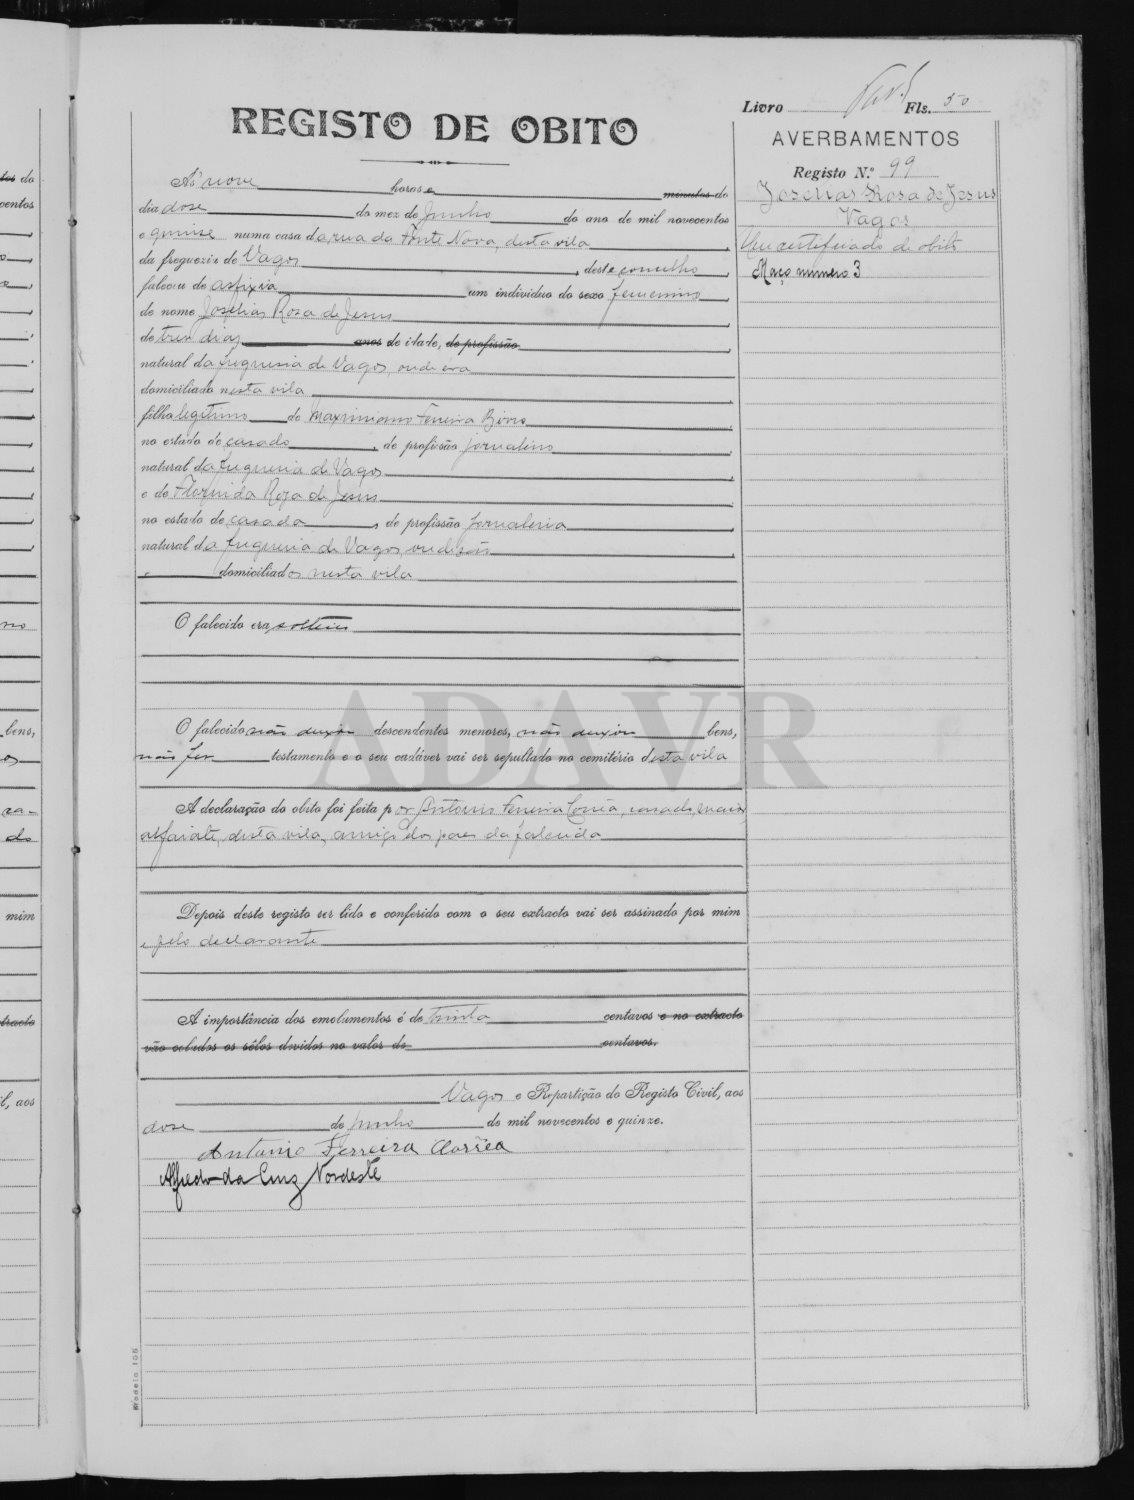 Livro Fls. 50
REGISTO DE OBITO
AVERBAMENTOS
Registo N.º 99
Rosa de Jesus
Vagos
Um certificado de obito
Maço numero 3
Ás nove horas e minutos do
dia dose do mez de Junho do ano de mil novecentos
e quinse numa casa da rua da Fonte Nova, desta vila,
da freguezia de Vagos, deste concelho,
faleceu de asfixia um individuo do sexo femenino
de nome Rosa de Jesus,
de tres dias anos de idade, de profissão,
natural da freguesia de Vagos, onde era
domiciliado nesta vila,
filho legitimo de Maximiano Ferreira
no estado de casado, de profissão jornaleiro,
natural da freguesia de Vagos
e de Florinda Roza de Jesus
no estado de casada, de profissão jornaleira,
natural da freguesia de Vagos, onde são
domiciliados nesta vila
O falecido era solteiro
O falecido não deixou descendentes menores, não deixou bens,
não fez testamento e o seu cadáver vai ser sepultado no cemitério desta vila
A declaração do obito foi feita por Antonio Ferreira Corrêa, casado,
alfaiate, desta vila, amigo dos paes da falecida
Depois deste registo ser lido e conferido com o seu extracto vai ser assinado por mim
e pelo declarante
A importância dos emolumentos é de trinta centavos e no extracto
vão colados os sêlos devidos no valor de centavos.
Vagos e Repartição do Registo Civil, aos
dose de Junho de mil novecentos e quinze.
Antonio Ferreira Corrêa
Alfredo da Cruz Nordeste
ADAVR
Modelo 105